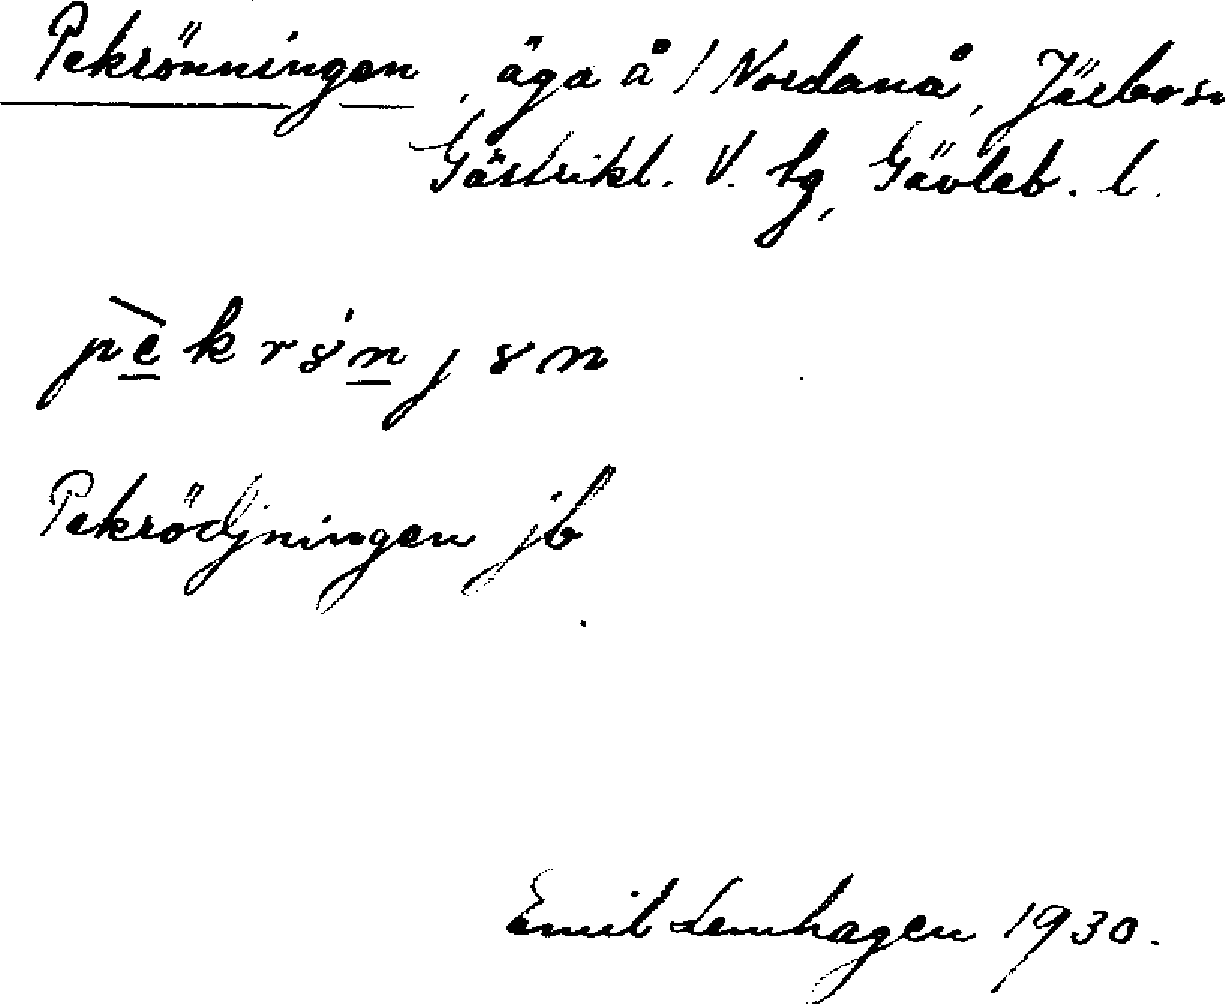 Pekrönningen, äga å / Nordanå, Järbo sn
Gästrikl. V. tg, Gävleb. l.
Pekrödjningen jb
Emil Lemhagen 1930.